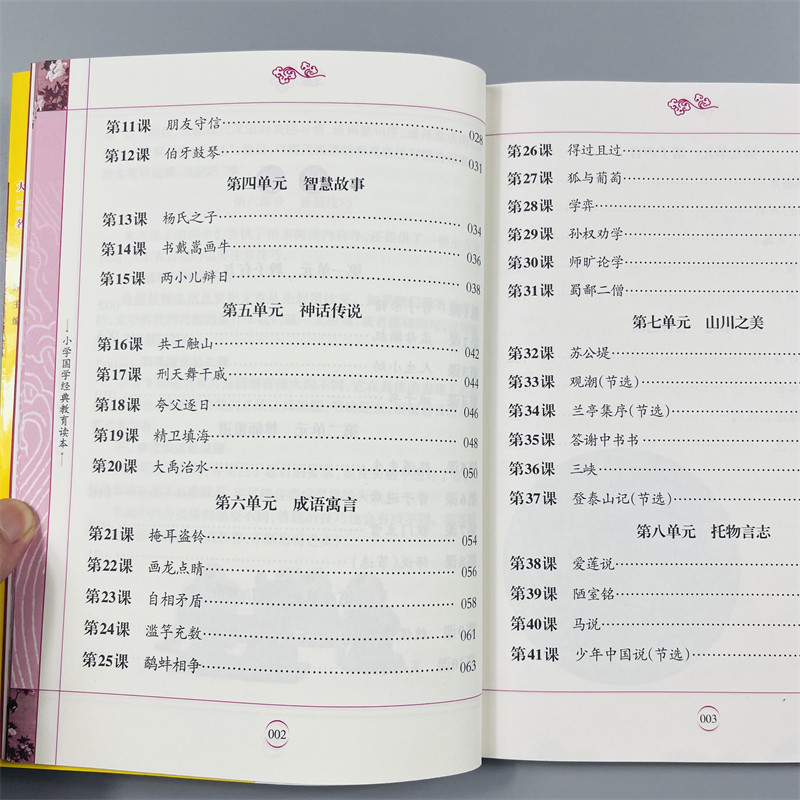 第11课 朋友守信 028
第12课 伯牙鼓琴 031
第四单元 智慧故事
第13课 杨氏之子 034
第14课 书戴嵩画牛 036
第15课 两小儿辩日 038
第五单元 神话传说
第16课 共工触山 042
第17课 刑天舞干戚 044
第18课 夸父逐日 046
第19课 精卫填海 048
第20课 大禹治水 050
第六单元 成语寓言
第21课 掩耳盗铃 054
第22课 画龙点睛 056
第23课 自相矛盾 058
第24课 滥竽充数 061
第25课 鹬蚌相争 063
小学国学经典教育读本
002
第26课 得过且过
第27课 狐与葡萄
第28课 学弈
第29课 孙权劝学
第30课 师旷论学
第31课 蜀鄙二僧
第七单元 山川之美
第32课 苏公堤
第33课 观潮(节选)
第34课 兰亭集序(节选)
第35课 答谢中书书
第36课 三峡
第37课 登泰山记(节选)
第八单元 托物言志
第38课 爱莲说
第39课 陋室铭
第40课 马说
第41课 少年中国说(节选)
003